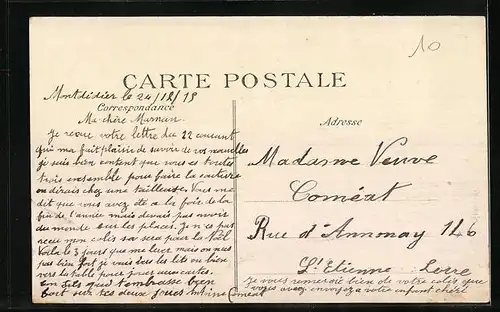 10
CARTE POSTALE
Montdidier le 24/12/15
Correspondance
Ma chère Maman
Je reçue votre lettre du 22 courant
qui ma fait plaisir de savoir de vos nouvelles
je suis bien content que vous êtes toutes
trois ensemble pour faire la
on dirais chez une tailleuse. Vous me
dit que vous avez été a la foire de la
fin de l'année mais devais pas avoir
du monde sur les places. Je n'es pas
recue mon colis sa sera pour la Noël
Voila 3 jours que me leve mais on nes
pas bien fort je vais dois les lits ou bien
vers la table pour jouer aux cartes.
Ton fils qui t'embrasse bien
fort sur tes deux joues Antoine Coméat
Adresse
Madame Veuve
Coméat
Rue d'Annonay 146
St Etienne Loire
Je vous remercie bien de votre colis que
vous avez envoyez a votre enfant chéri